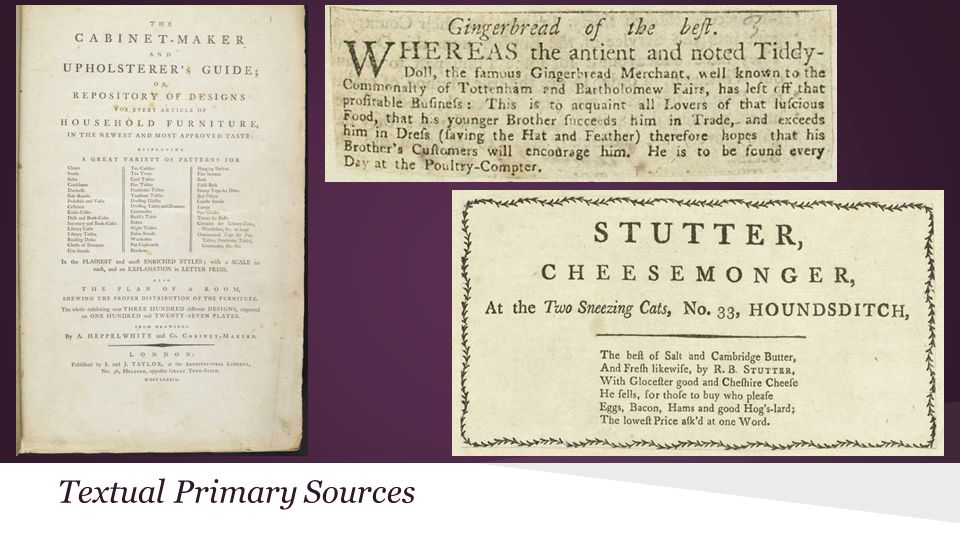 THE
CABINET-MAKER
AND
UPHOLSTERER's GUIDE;
OR,
REPOSITORY OF DESIGNS
FOR EVERY ARTICLE OF
HOUSEHOLD FURNITURE,
IN THE NEWEST AND MOST APPROVED TASTE:
DISPLAYING
A GREAT VARIETY OF PATTERNS FOR
Chairs
Stools
Sofas
Confidante
Duchesse
Side Boards
Pedestals and Vases
Cellerets
Knife-Cases
Desk and Book-Cases
Secretary and Book-Cases
Library Cases
Library Tables
Reading Desks
Chests of Drawers
Urn Stands
Tea Caddies
Tea Trays
Card Tables
Pier Tables
Pembroke Tables
Tambour Tables
Dressing Glasses
Dressing Tables and Drawers
Commodes
Rudd's Table
Bidets
Night Tables
Bason Stands
Wardrobes
Pot Cupboards
Brackets
Hanging Shelves
Fire Screens
Beds
Field Beds
Sweep Tops for Ditto
Bed Pillars
Candle Stands
Lamps
Pier Glasses
Cornices for Library-Cases,
Wardrobes, &c. at large
Ornamented Tops for Pier
Tables, Pembroke Tables,
Commodes, &c. &c.
In the PLAINEST and moſt ENRICHED STYLES; with a SCALE to
each, and an EXPLANATION in LETTER PRESS.
ALSO
THE PLAN OF A ROOM,
SHEWING THE PROPER DISTRIBUTION OF THE FURNITURE.
The whole exhibiting near THREE HUNDRED different DESIGNS, engraved
on ONE HUNDRED and TWENTY-SEVEN PLATES.
FROM DRAWINGS
By A. HEPPELWHITE and Co. CABINET-MAKERS.
LONDON:
Publiſhed by I. and J. TAYLOR, at the ARCHITECTURAL LIBRARY,
No. 56, HOLBORN, oppoſite GREAT TURN-STILE.
MDCCLXXXIX.
Gingerbread of the beſt. 3
WHEREAS the antient and noted Tiddy-
Doll, the famous Gingerbread Merchant, well known to the
Commonalty of Tottenham and Bartholomew Fairs, has left off that
profitable Buſineſs: This is to acquaint all Lovers of that luſcious
Food, that his younger Brother ſucceeds him in Trade, and exceeds
him in Dreſs (ſaving the Hat and Feather) therefore hopes that his
Brother's Cuſtomers will encourage him. He is to be found every
Day at the Poultry-Compter.
STUTTER,
CHEESEMONGER,
At the Two Sneezing Cats, No. 33, HOUNDSDITCH,
The beſt of Salt and Cambridge Butter,
And Freſh likewiſe, by R. B. STUTTER,
With Gloceſter good and Cheſhire Cheeſe
He ſells, for thoſe to buy who pleaſe
Eggs, Bacon, Hams and good Hog's-lard;
The loweſt Price aſk'd at one Word.
Textual Primary Sources